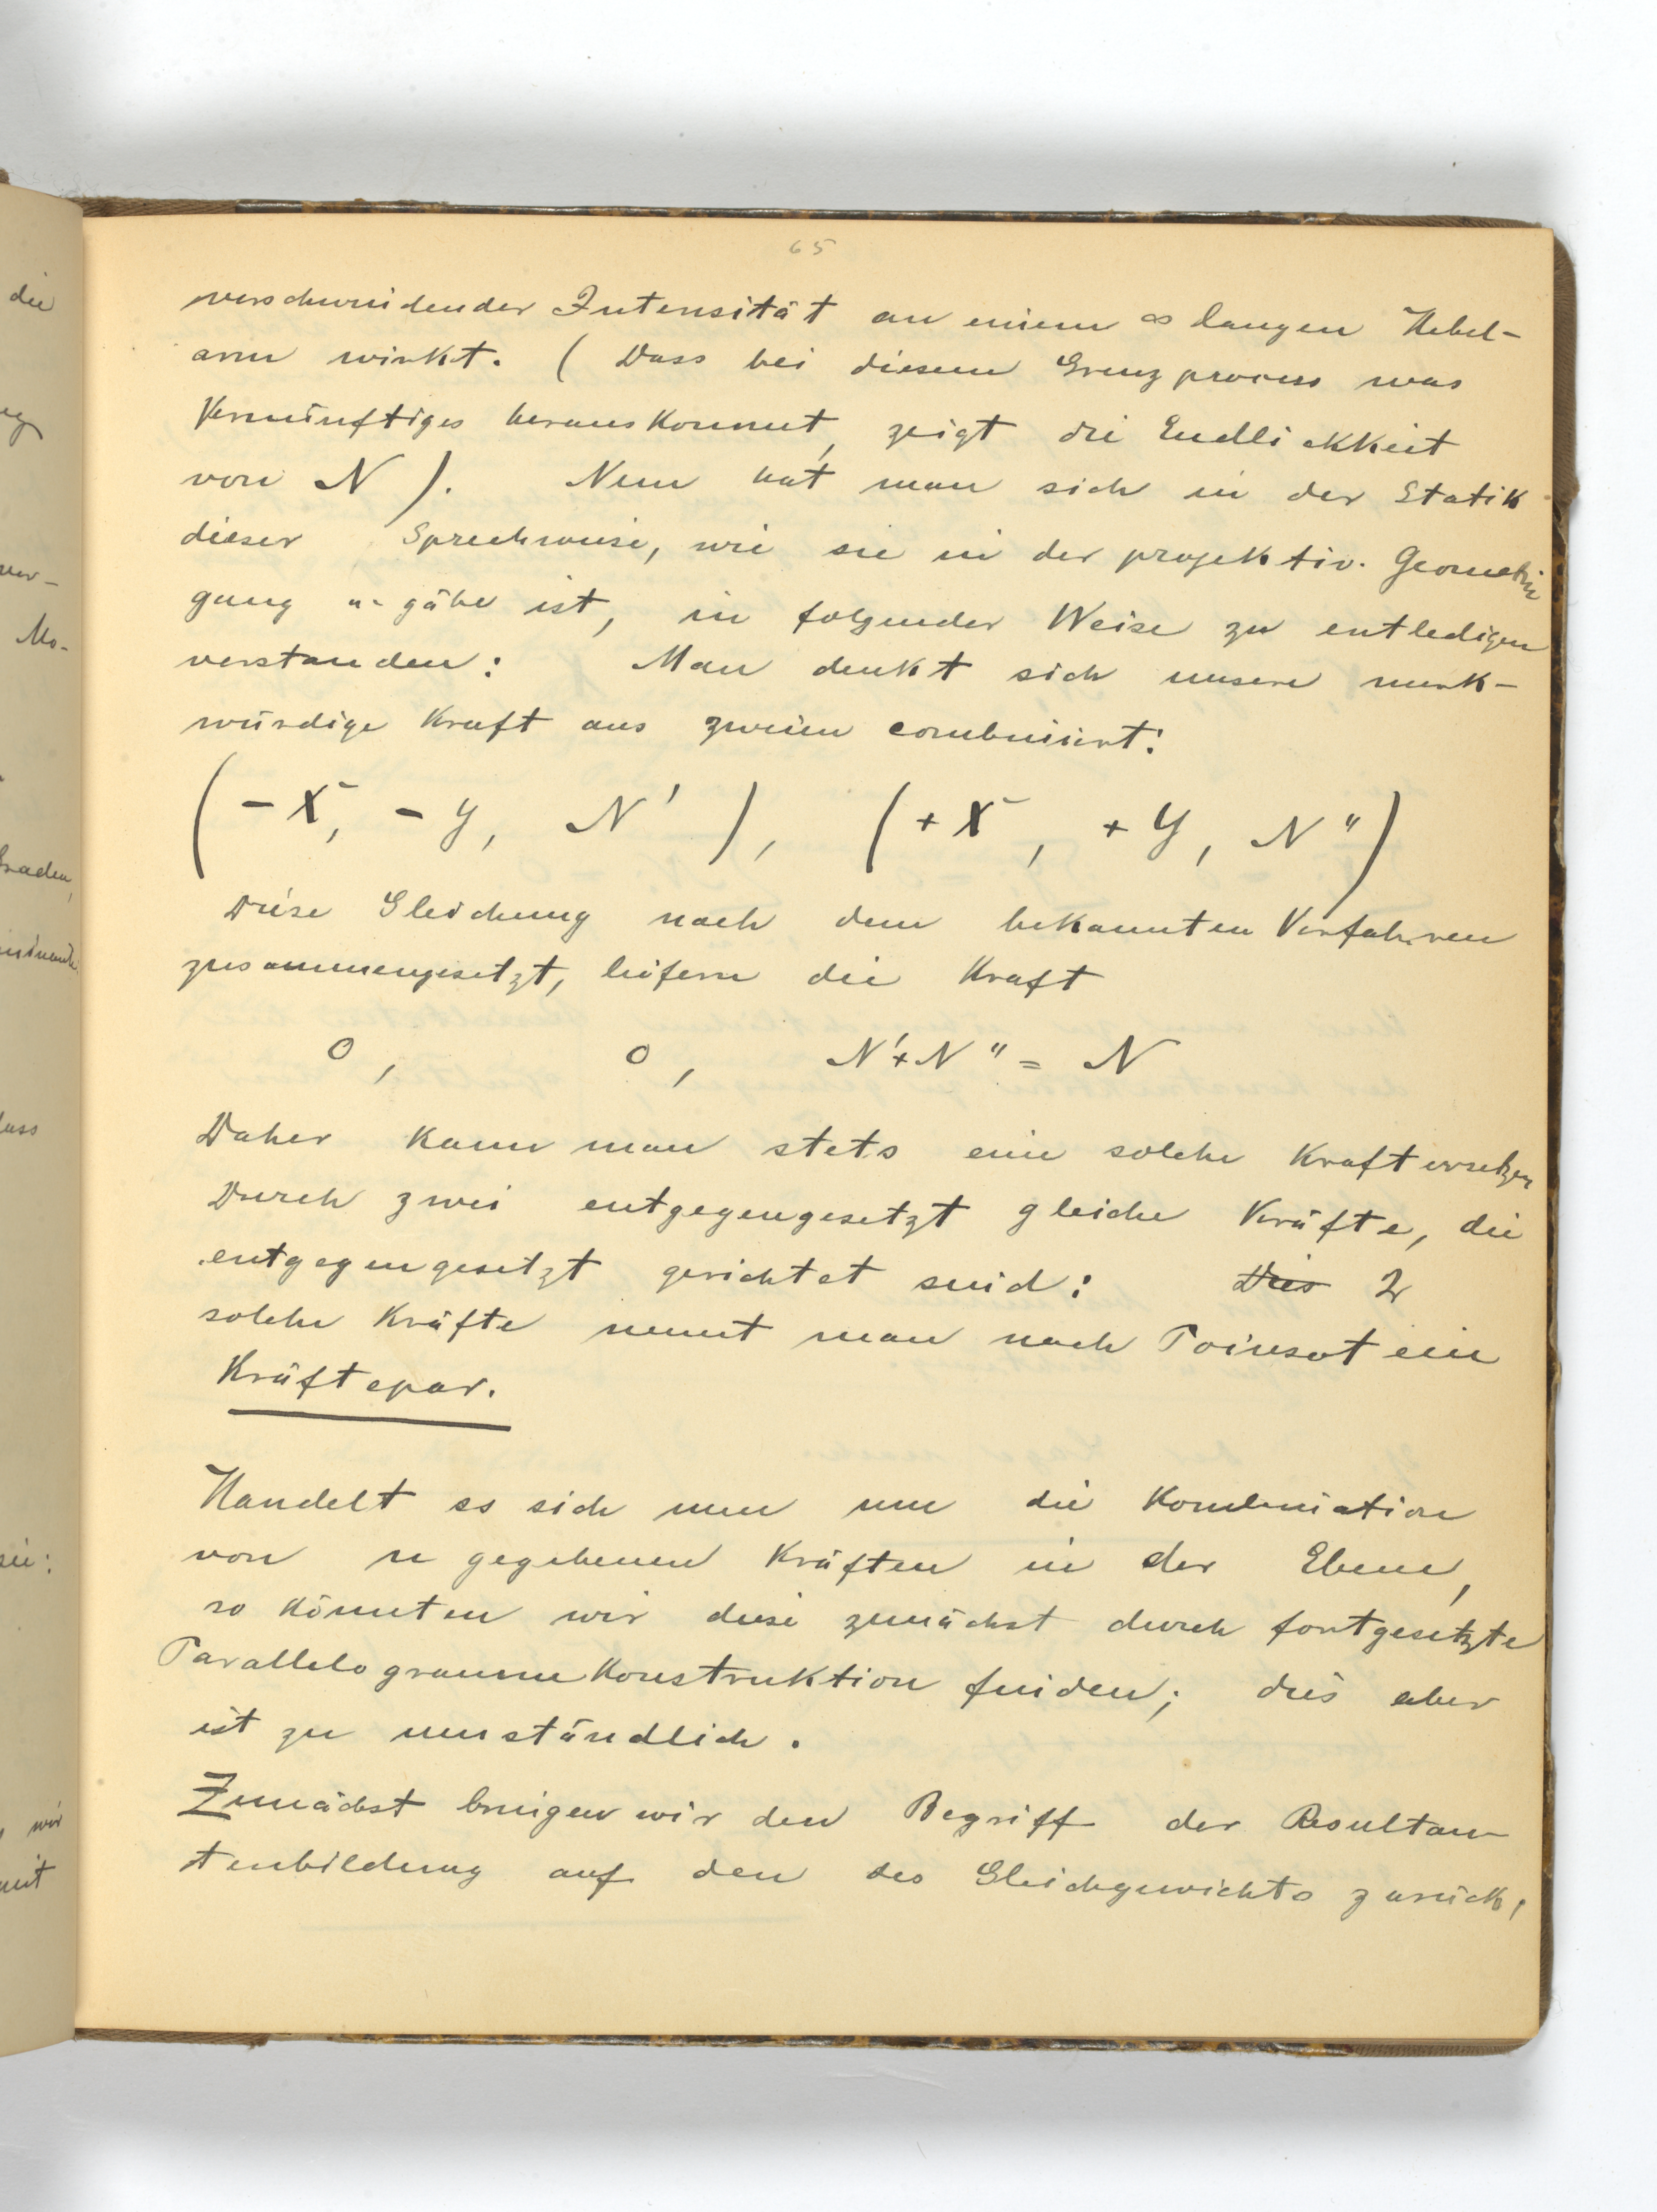 65
verschwindender Intensität an einem ∞ langen Hebel-
arm wirkt. (Dass bei diesem Grenzprocess was
Vernünftiges herauskommt, zeigt die Endlichkeit
von N). Nun hat man sich in der Statik
dieser Sprechweise, wie sie in der projektiv. Geometrie
gang u. gäbe ist, in folgender Weise zu entledigen
verstanden: Man denkt sich unsere merk-
würdige Kraft aus zweien combiniert:
(-X, -Y, N'), (+X, +Y, N'')
Diese Gleichung nach dem bekannten Verfahren
zusammengesetzt, liefern die Kraft
0, 0, N'+N'' = N
Daher kann man stets eine solche Kraft ersetzen
Durch zwei entgegengesetzt gleiche Kräfte, die
entgegengesetzt gerichtet sind: Dies 2
solche Kräfte nennt man nach Poinsot ein
Kräftepar.
Handelt es sich nun um die Kombination
von n gegebenen Kräften in der Ebene,
so könnten wir diese zunächst durch fortgesetzte
ParallelogrammKonstruktion finden; dies aber
ist zu umständlich.
Zunächst bringen wir den Begriff der Resultan-
tenbildung auf den des Gleichgewichts zurück,
die
ver-
Mo-
Graden,
dass
sie:
, wir
mit